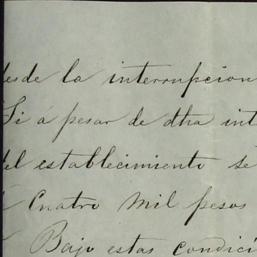 desde la interrupcion
Si á pesar de dha int
del establecimiento se
Cuatro mil pesos
Bajo estas condici